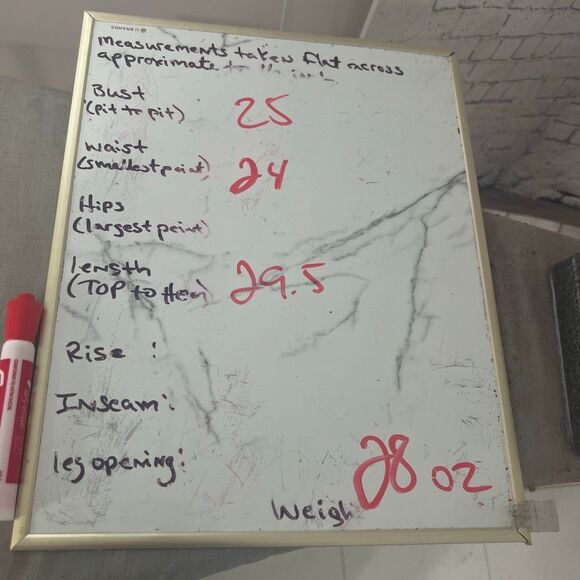 U BRANDS
Measurements taken flat across
approximate
Bust
(pit to pit) 25
Waist
(smallest point) 24
Hips
(largest point)
length
(TOP to Hem) 29.5
Rise :
Inseam:
leg opening:
Weigh 28 oz